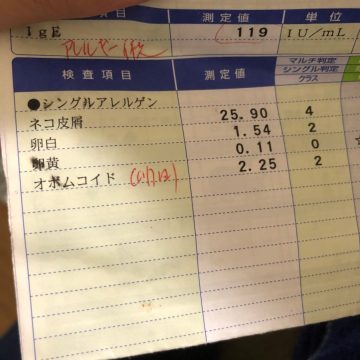 項目 測定値 単位
IgE 119 IU/mL
検査項目 測定値 マルチ判定
シングル判定
クラス
●シングルアレルゲン
ネコ皮屑 25.90 4
卵白 1.54 2
卵黄 0.11 0
オボムコイド 2.25 2